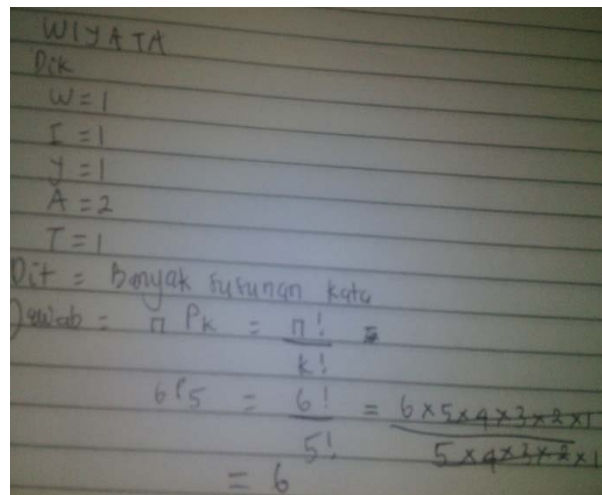 WIYATA
Dik
W = 1
I = 1
y = 1
A = 2
T = 1
Dit = Banyak susunan kata
Jawab = n P k = n! / k! =
6P5 = 6! / 5! = 6 x 5 x 4 x 3 x 2 x 1 / 5 x 4 x 3 x 2 x 1
= 6